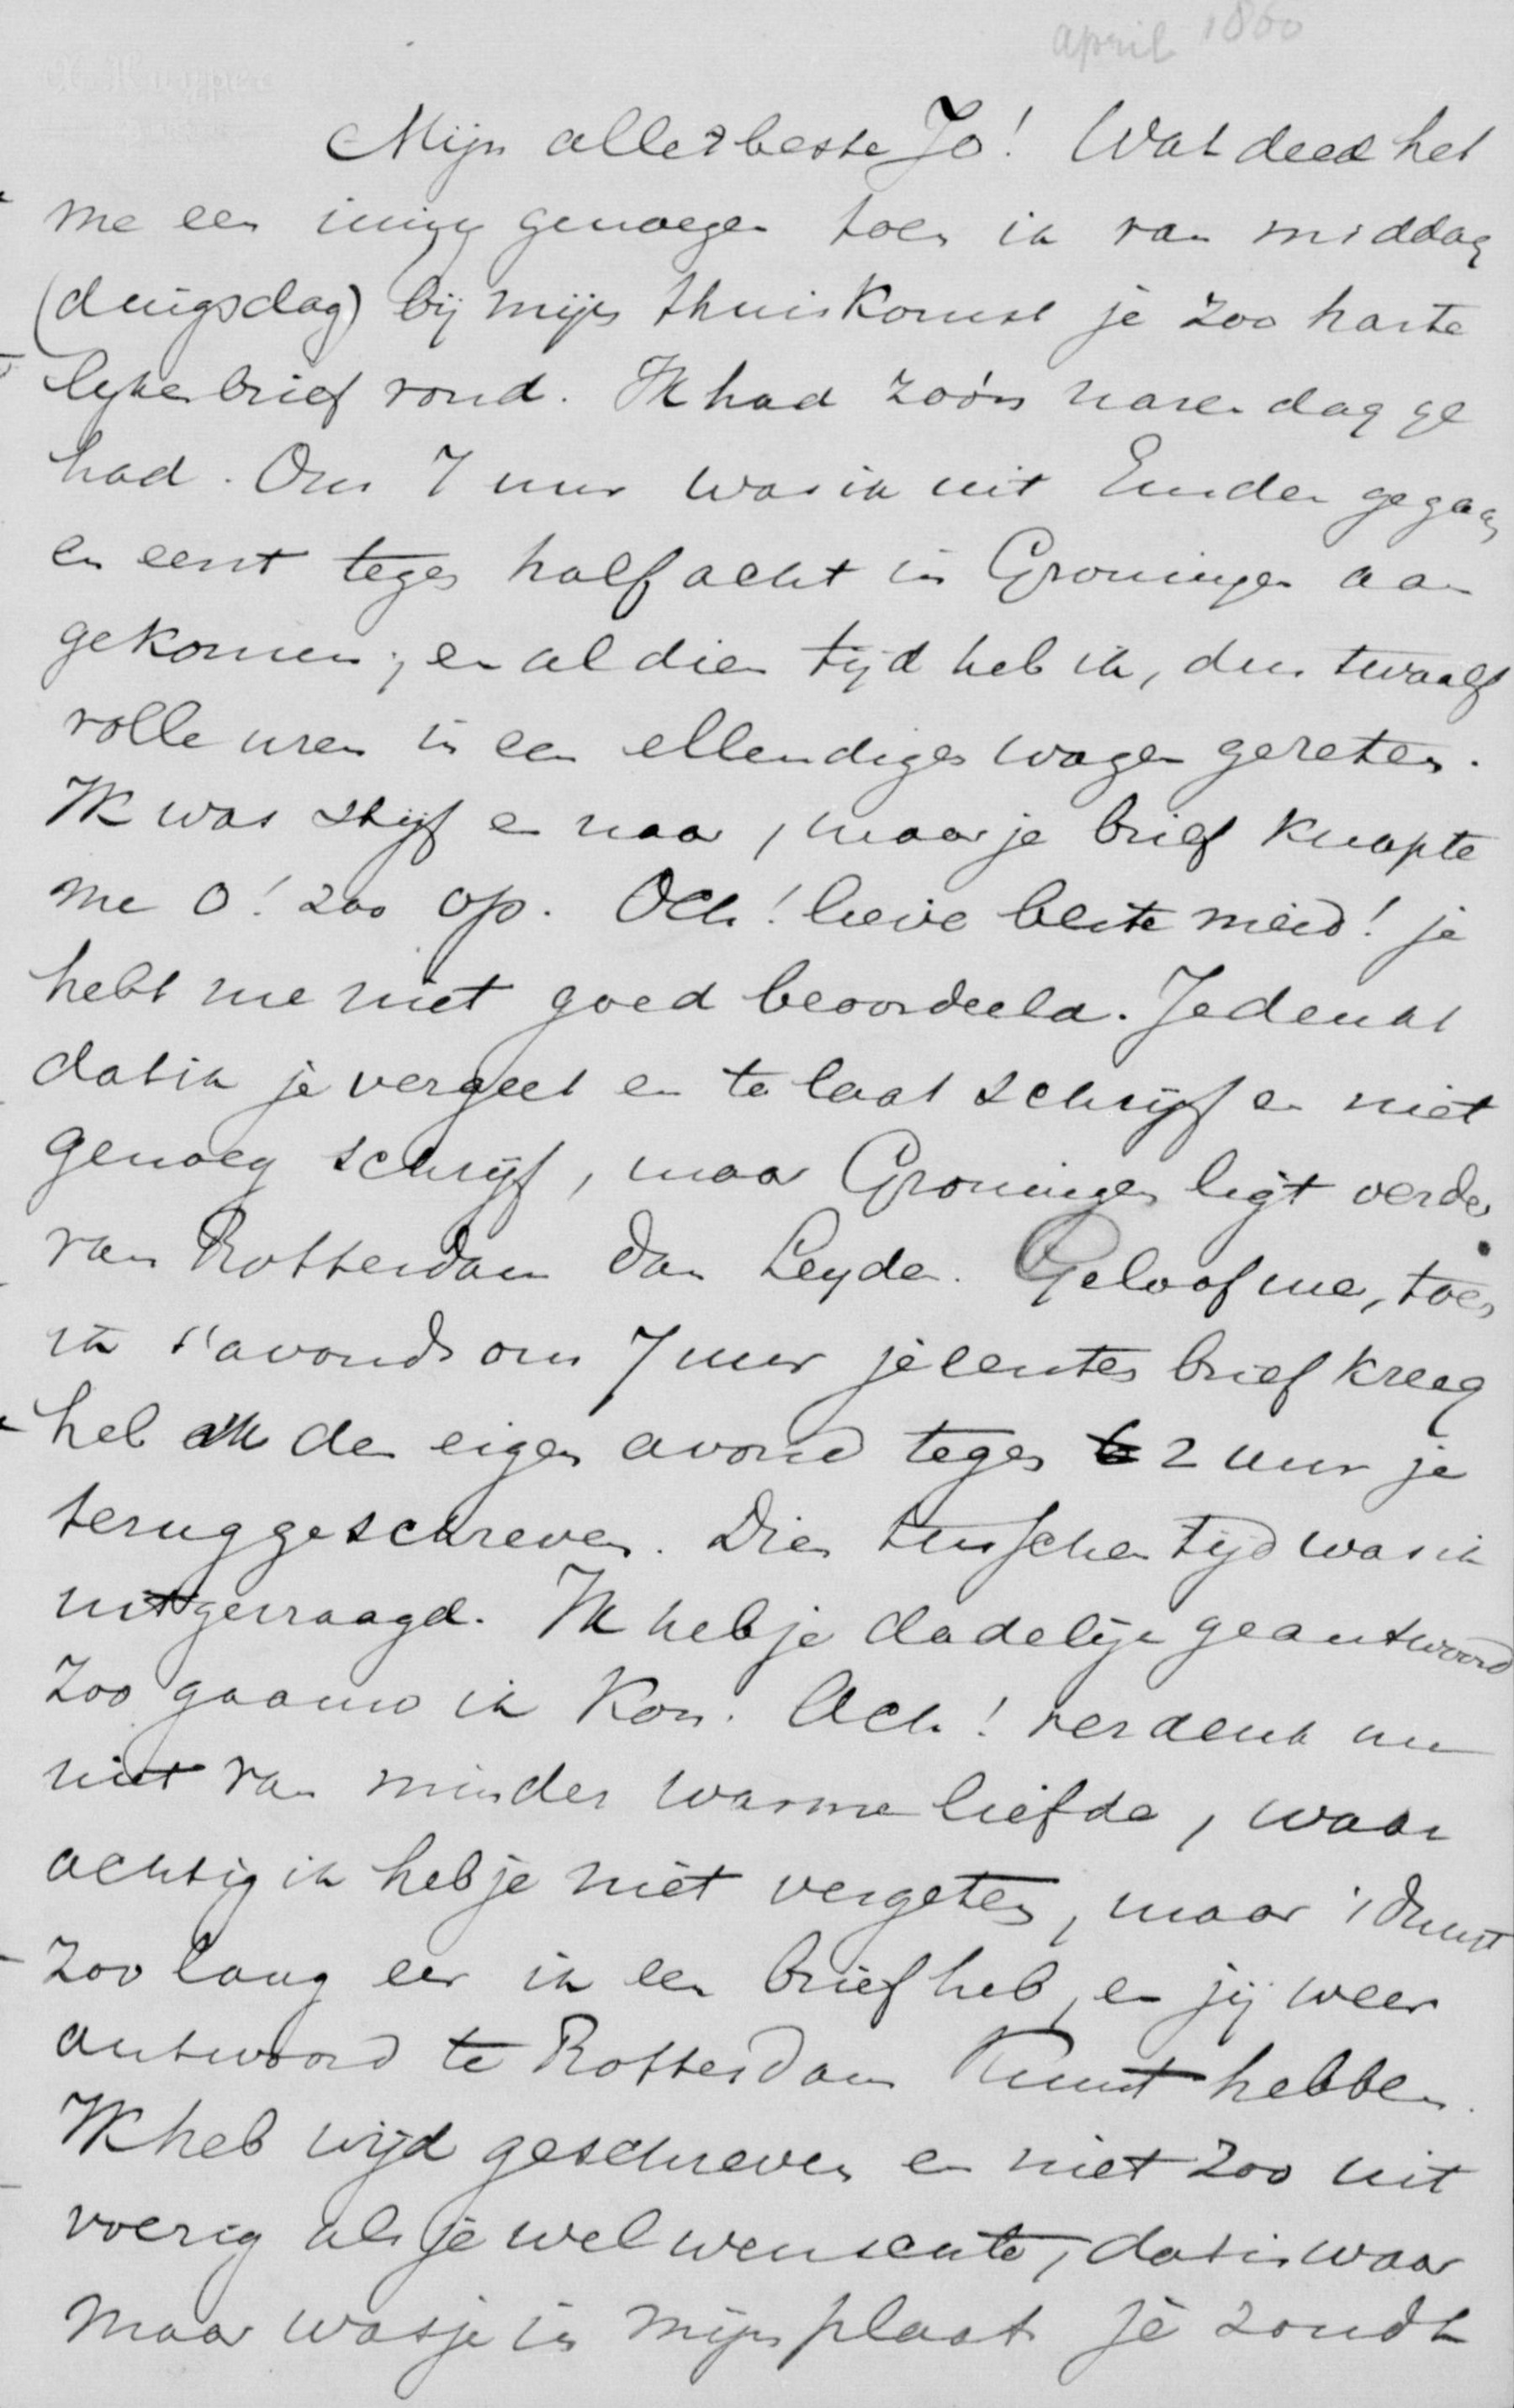 april 1860
Mijn allerbeste Jo! Wat deed het
me een innig genoegen toen ik van middag
(dingsdag) bij mijn thuiskomst je zoo harte
lyken brief vond. Ik had zóó'n naren dag ge
had. Om 7 uur was ik uit Emden gegaan
en eerst tegen half acht in Groningen aan
gekomen; en al dien tijd heb ik, dus twaalf
volle uren in een ellendigen wagen gezeten.
Ik was stijf en naar, maar je brief knapte
me O! zoo op. Och! lieve beste meid! je
hebt me niet goed beoordeeld. Je denkt
dat ik je vergeet en te laat schrijf en niet
genoeg schrijf, maar Groningen ligt verder
van Rotterdam dan Leyden. Geloof me, toen
ik s'avonds om 7 uur je eersten brief kreeg
heb ik den eigen avond tegen 2 uur je
teruggeschreven. Dien tusschen tijd was ik
uitgevraagd. Ik heb je dadelijk geantwoord
zoo gaauw ik kon. Ach! verdenk me
niet van minder warme liefde, waar
achtig ik heb je niet vergeten, maar 't duurt
zoo lang eer ik een brief heb, en jij weer
antwoord te Rotterdam kunt hebben.
Ik heb wijd geschreven en niet zoo uit
voerig als je wel wenschte, dat is waar
maar was je in mijn plaats je zoudt